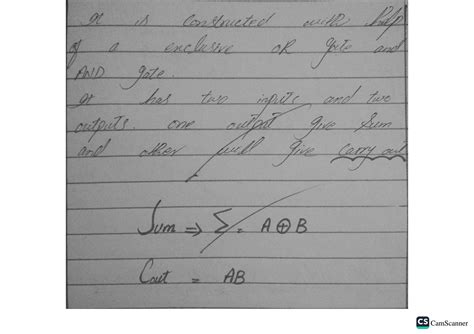 It is constructed with help
of a exclusive OR gate and
AND gate.
It has two inputs and two
outputs. one output give Sum
and other will give carry out
Sum ⇒ Σ = A⊕B
Cout = AB
CS CamScanner